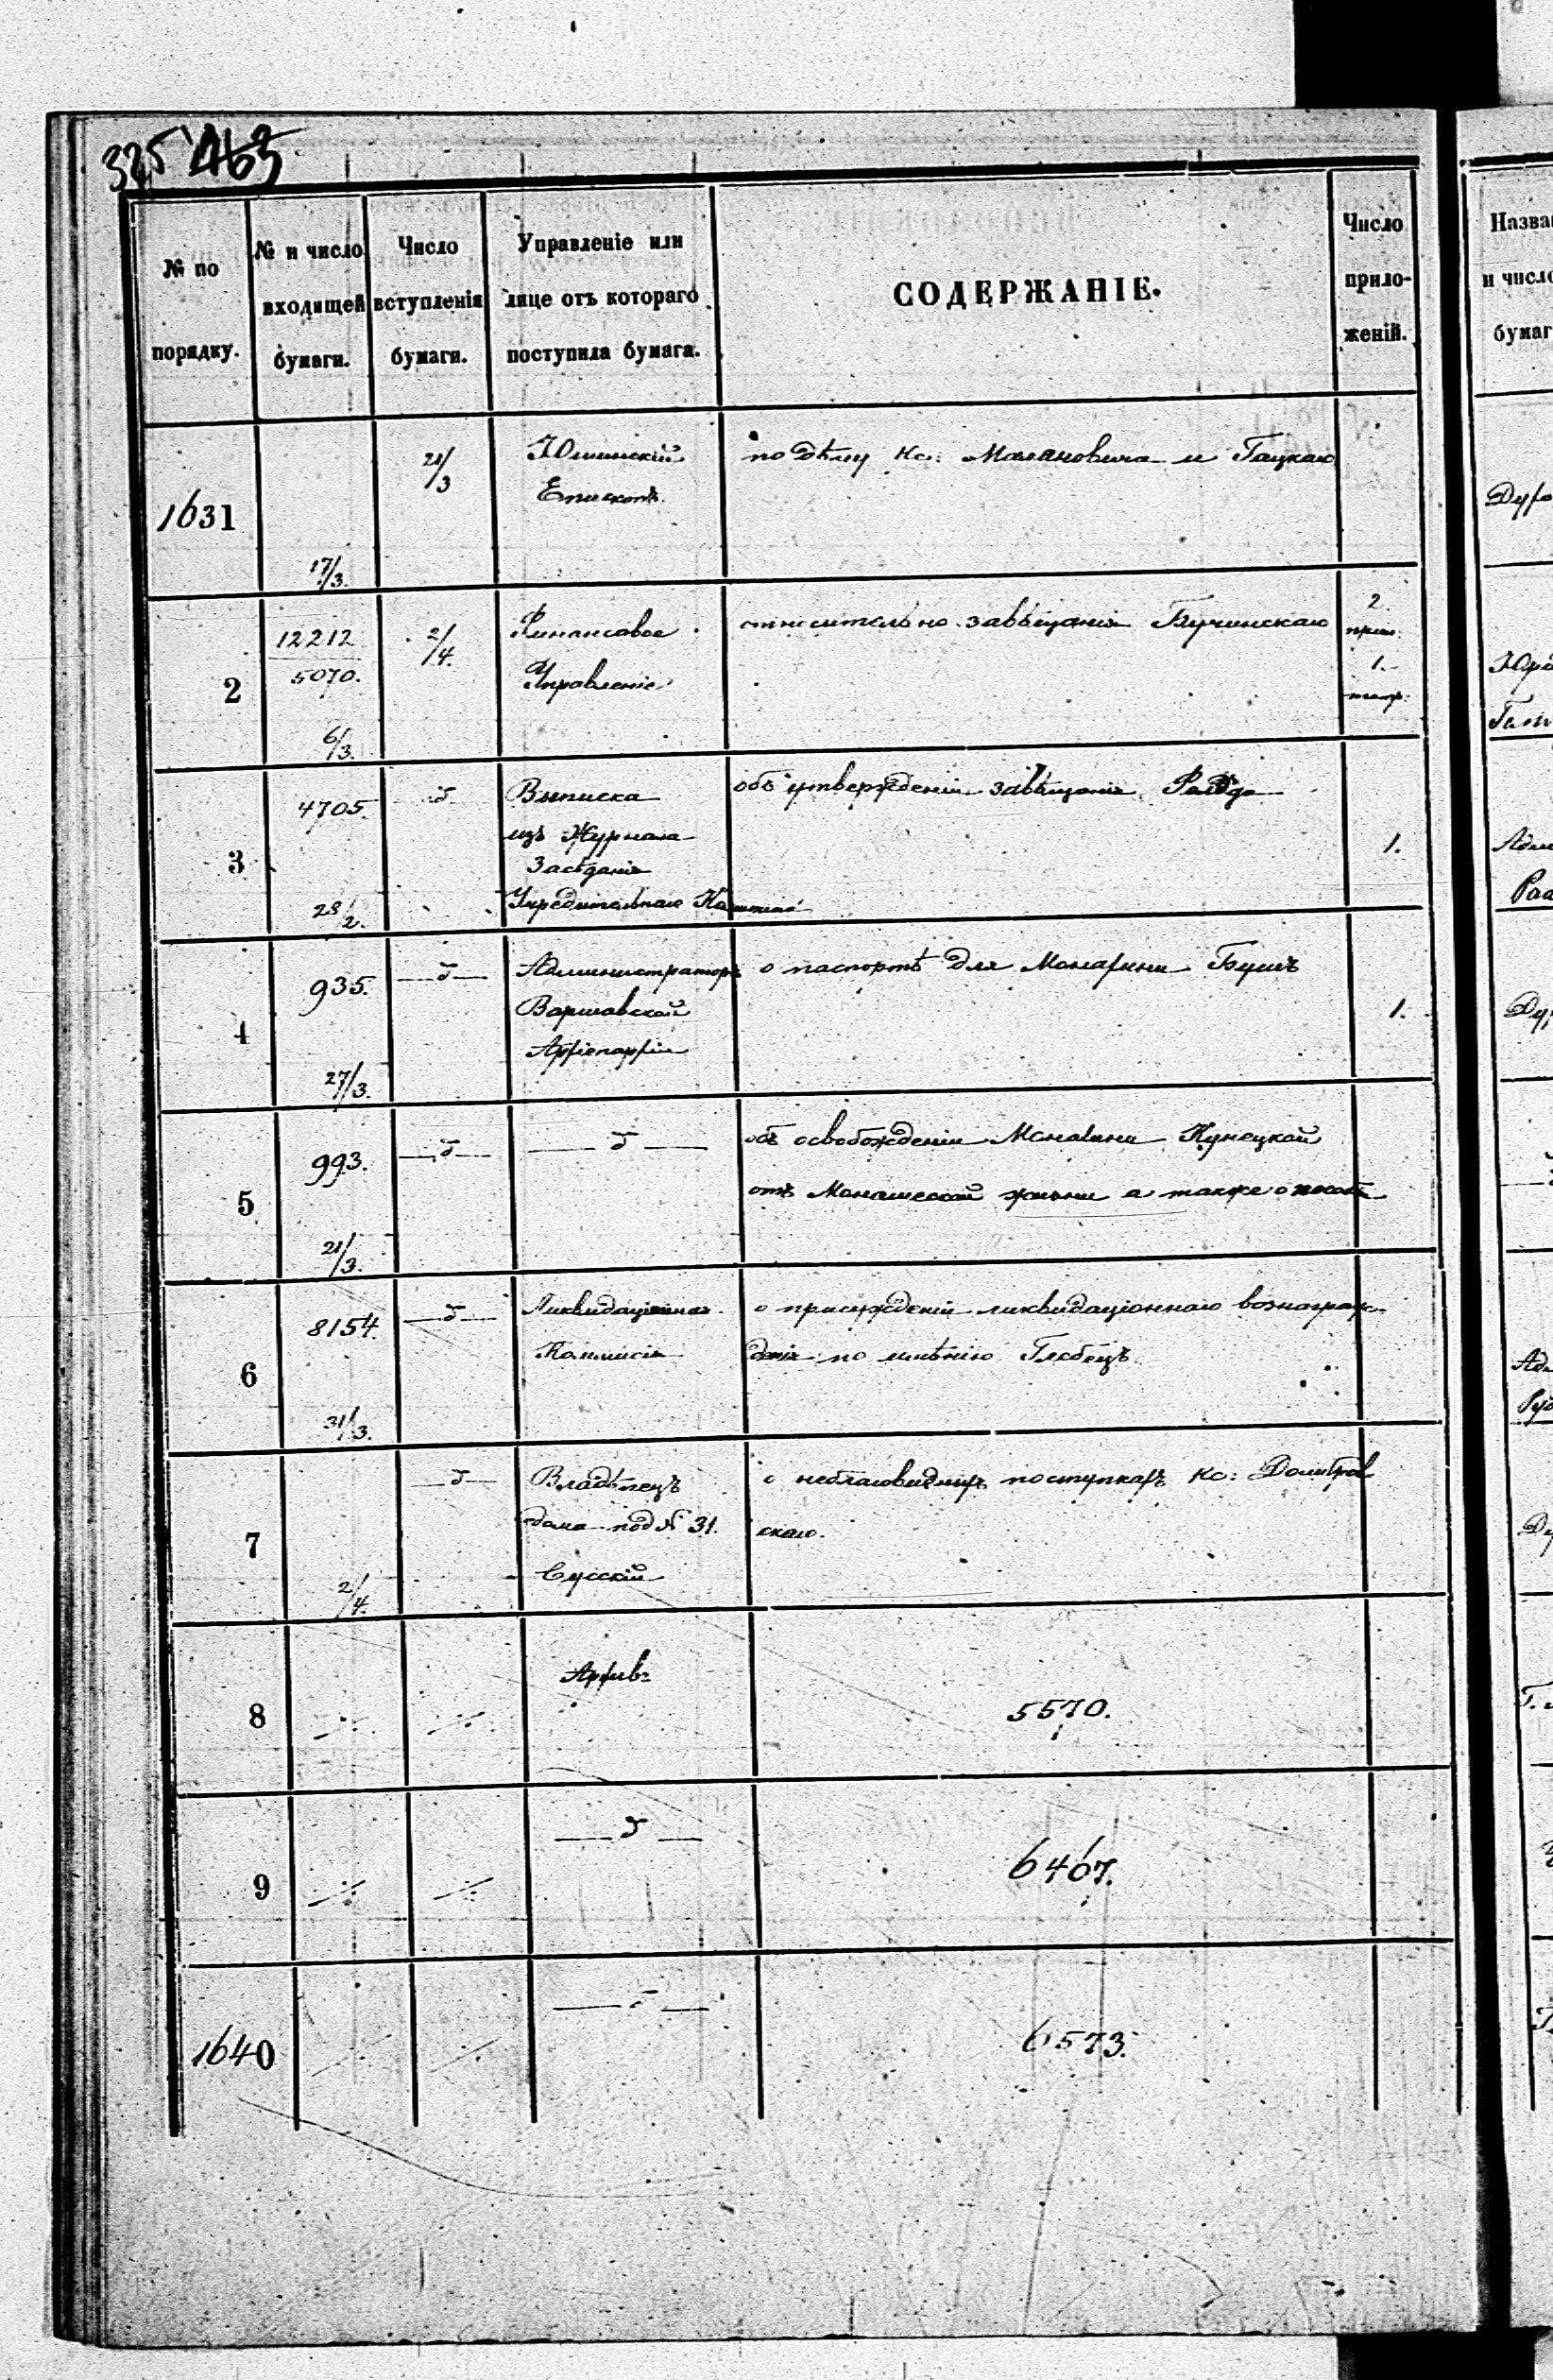 325 463
№ по
порядку.
№ и число
входящей
бумаги.
Число
вступленія
бумаги.
Управленіе или
лице отъ котораго
поступила бумага.
СОДЕРЖАНІЕ.
Число
прило-
женій.
1631
17/3.
21/3
Епископъ.
по дѣлу Кс: Малановича и Гацкаго
2
12212
5070.
6/3.
2/4.
Финансовое
Управленіе
относительно завѣщанія Бучинскаго
2
прил.
1.
3
4705.
28/2.
δ
Выписка
изъ Журнала
Засѣданія
Учредительнаго Комитета
объ утвержденіи завѣщанія
1.
4
935.
27/3.
δ
Администраторъ
Варшавской
Архіепархіи
о паспортѣ для Монахини Бушъ
1.
5
993.
21/3.
δ
δ
объ освобожденіи Монахини Кунецкой
отъ Монашеской жизни а также о
6
8154.
31/3.
δ
Ликвидаціонная
Коммисія
о присужденіи ликвидаціоннаго вознаграж-
денія по имѣнію
7
2/4.
δ
Владѣлецъ
дома под № 31.
Сусскій
о неблаговидныхъ поступкахъ Кс: Домбров
скаго.
8
Архивъ
5570.
9
δ
6467.
1640
δ
6573.
Назва
и число
бумаг
Ад